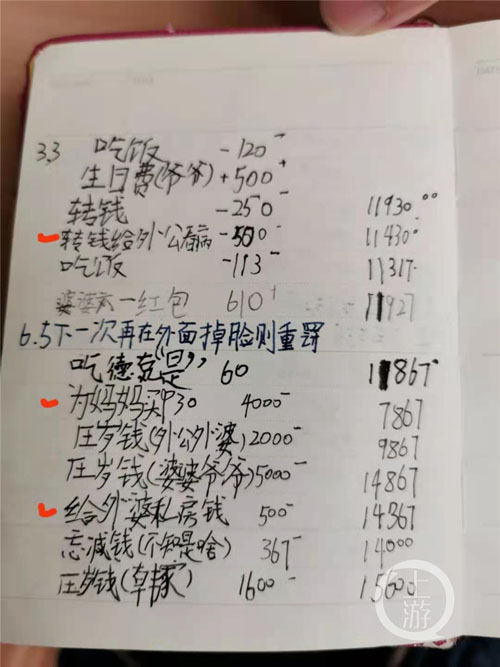 3.3 吃饭 -120-
生日费(爷爷) +500+
转钱 -250- 11930.00
转钱给外公看病 -500- 11430.
吃饭 -113- 11317.
婆婆六一红包 610+ 11927
6.5下一次再在外面掉脸则重罚
吃德克“是” 60 11867
为妈妈买P30 4000- 7867
压岁钱(外公外婆) 2000- 9867
压岁钱(婆婆爷爷) 5000- 14867
给外婆私房钱 500- 14367
忘减钱(不知是啥) 367- 14000
压岁钱() 1600- 15600
上游